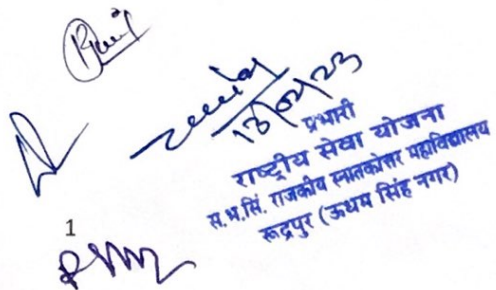 13/02/23
प्रभारी
राष्ट्रीय सेवा योजना
स.भ.सिं. राजकीय स्नातकोत्तर महाविद्यालय
रूद्रपुर (ऊधम सिंह नगर)
1